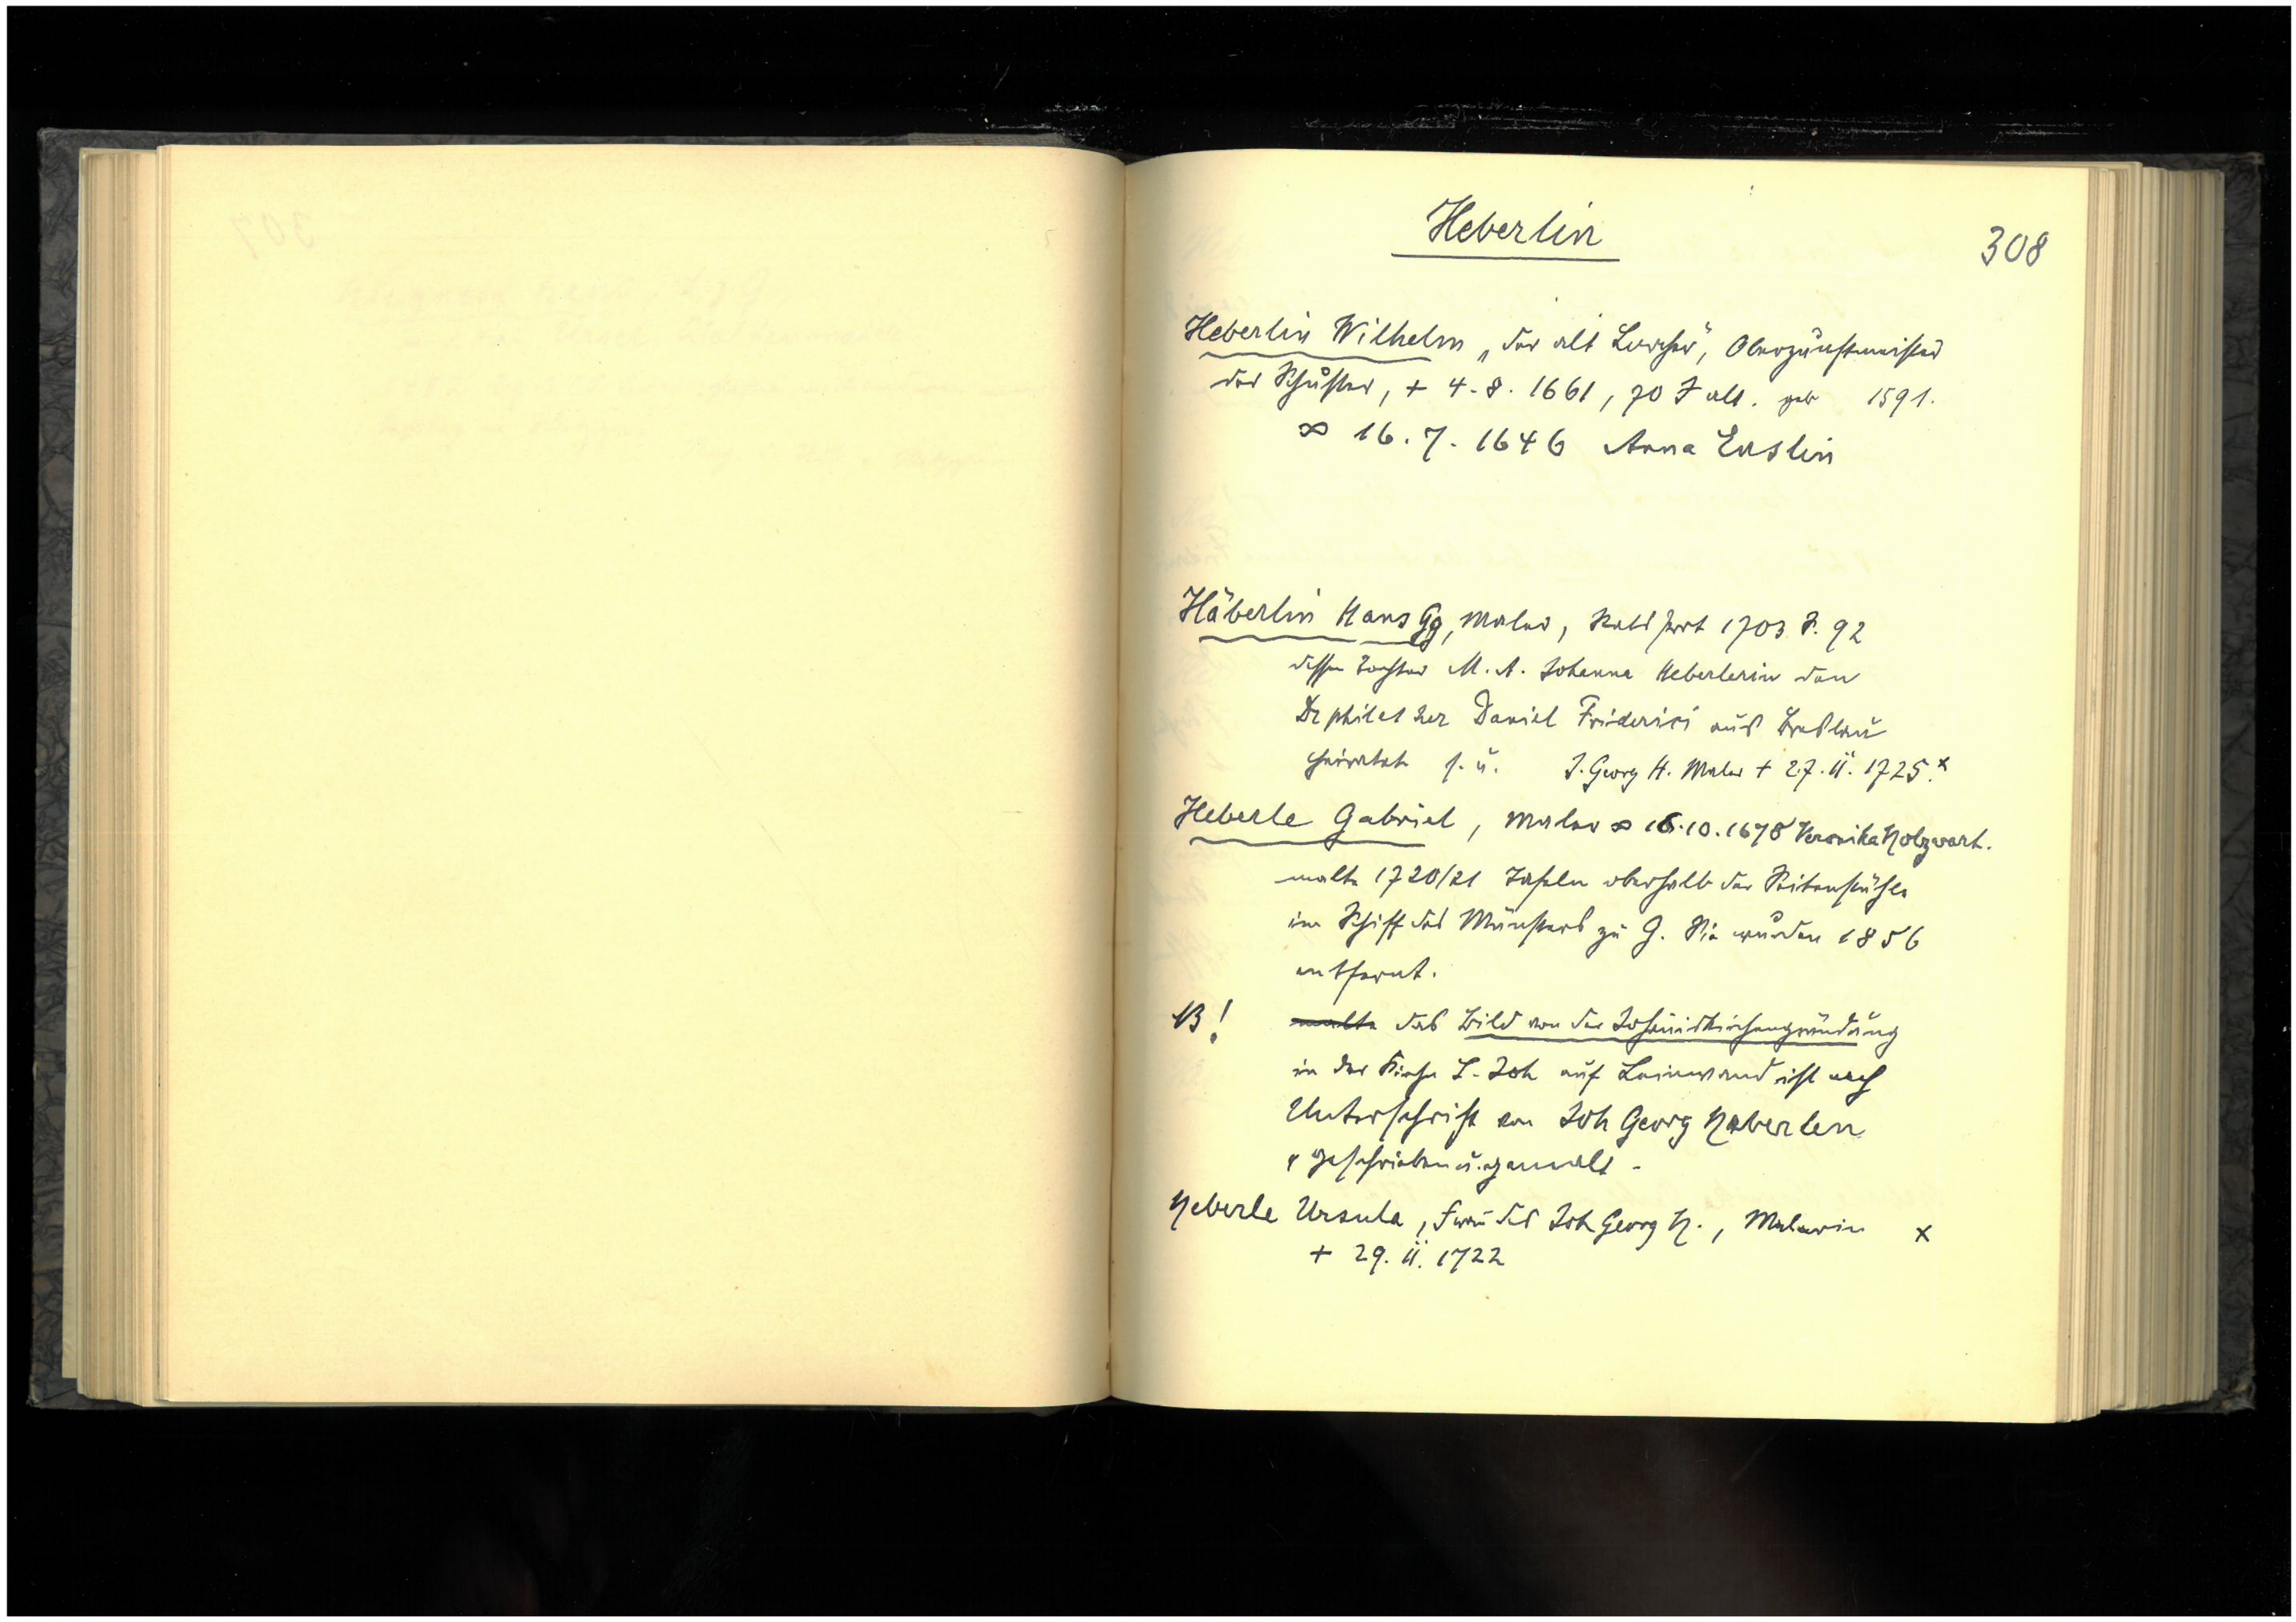 Heberlin
308
Heberlin Wilhelm „der alt Lorcher", Oberzunftmeister
der Schuster, + 4.8. 1661, 70 J alt. geb 1591.
∞ 16.7. 1646 Anna Enslin
Häberlin Hans Gg, Maler, 1703 S. 92
dessen Tochter M. A. Johanna Heberlerin den
Dr phil et Daniel Friderici aus Breslau
heiratet s. u. J. Georg H. Maler + 27. II. 1725. x
Heberle Gabriel, Maler ∞ 16.10.1678 Veronika Holzwart.
malte 1720/21 Tafeln oberhalb der Seitenstühle
im Schiff des Münsters zu G. Sie wurden 1856
entfernt.
NB! malte das Bild von der Johanniskirchengründung
in der Kirche S. Joh auf Leinwand ist nach
Unterschrift von Joh Georg Heberlen
geschrieben u. gemalt -
Heberle Ursula, Frau des Joh Georg H., Malerin x
+ 29. II. 1722